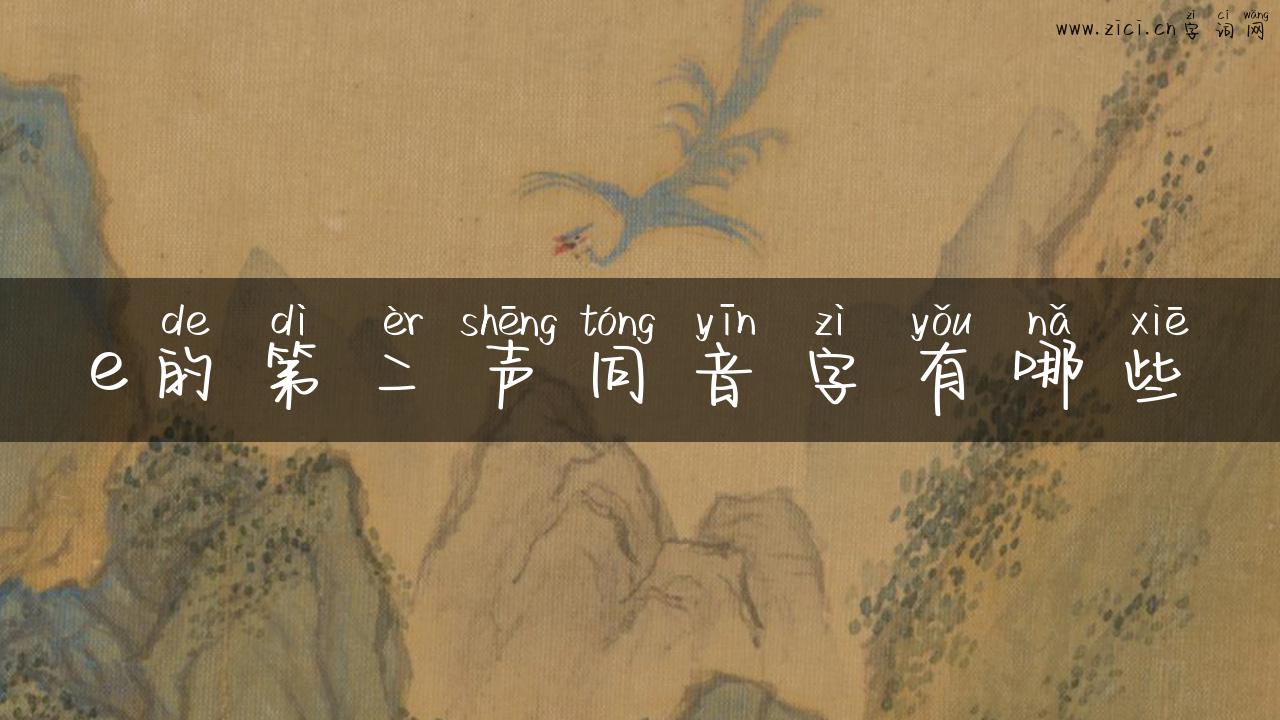 zì cì wǎng
www.zici.cn字词网
de dì èr shēng tóng yīn zì yǒu nǎ xiē
e的第二声同音字有哪些